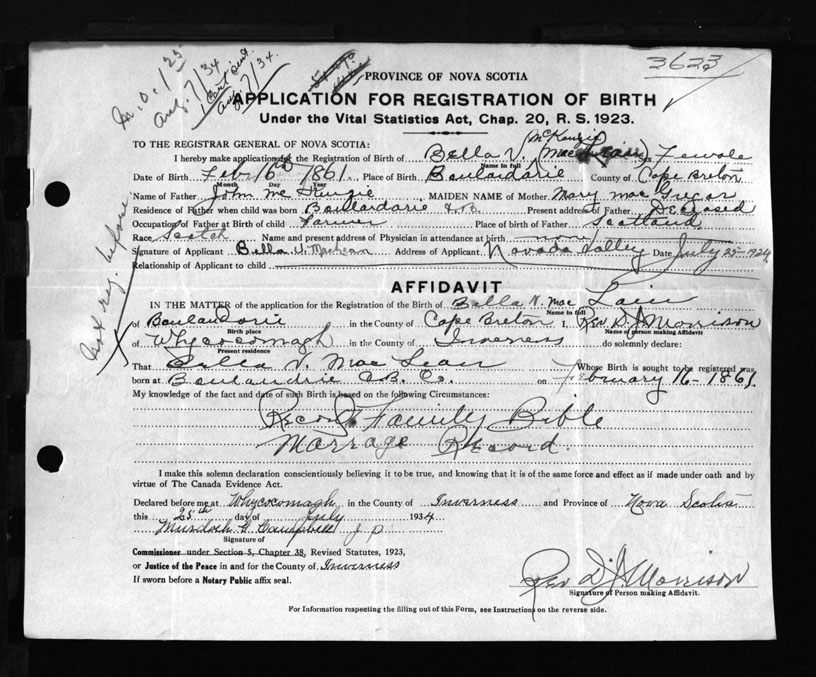 3623
M.O. 1/25
Aug. 7/34
Cert sent.
Aug. 7/34
PROVINCE OF NOVA SCOTIA
APPLICATION FOR REGISTRATION OF BIRTH
Under the Vital Statistics Act, Chap. 20, R. S. 1923.
TO THE REGISTRAR GENERAL OF NOVA SCOTIA:
(McKenzie)
I hereby make application for the Registration of Birth of Bella V. Sex Female
Name in full
Date of Birth Feb 16th 1861 Place of Birth Boulardarie County of Cape Breton
Month Day Year
Name of Father John MAIDEN NAME of Mother Mary
Residence of Father when child was born Boulardarie C.B. Present address of Father Deceased
Occupation of Father at Birth of child Farmer Place of birth of Father Scotland
Race Scotch Name and present address of Physician in attendance at birth none
Signature of Applicant Bella V. MacLean Address of Applicant Nevada Valley Date July 25-1934
Relationship of Applicant to child
Not reg. before
AFFIDAVIT
IN THE MATTER of the application for the Registration of the Birth of Bella V. Mac Lean
Name in full
of Boulardarie in the County of Cape Breton I, Rev D. J. Morrison
Birth place Name of person making Affidavit
of Whycocomagh in the County of Inverness do solemnly declare:
Present residence
That Bella V. Mac Lean Whose Birth is sought to be registered was
born at Boulardrie C.B. Co. on February 16-1861.
My knowledge of the fact and date of such Birth is based on the following Circumstances:
Record Family Bible
Marrage Record.
I make this solemn declaration conscientiously believing it to be true, and knowing that it is of the same force and effect as if made under oath and by
virtue of The Canada Evidence Act.
Declared before me at Whycocomagh in the County of Inverness and Province of Nova Scotia
this 25th day of July 1934
Murdoch G. Campbell J P
Signature of
Commissioner under Section 5, Chapter 38, Revised Statutes, 1923,
or Justice of the Peace in and for the County of Inverness
If sworn before a Notary Public affix seal.
Rev D. J. Morrison
Signature of Person making Affidavit.
For Information respecting the filling out of this Form, see Instructions on the reverse side.